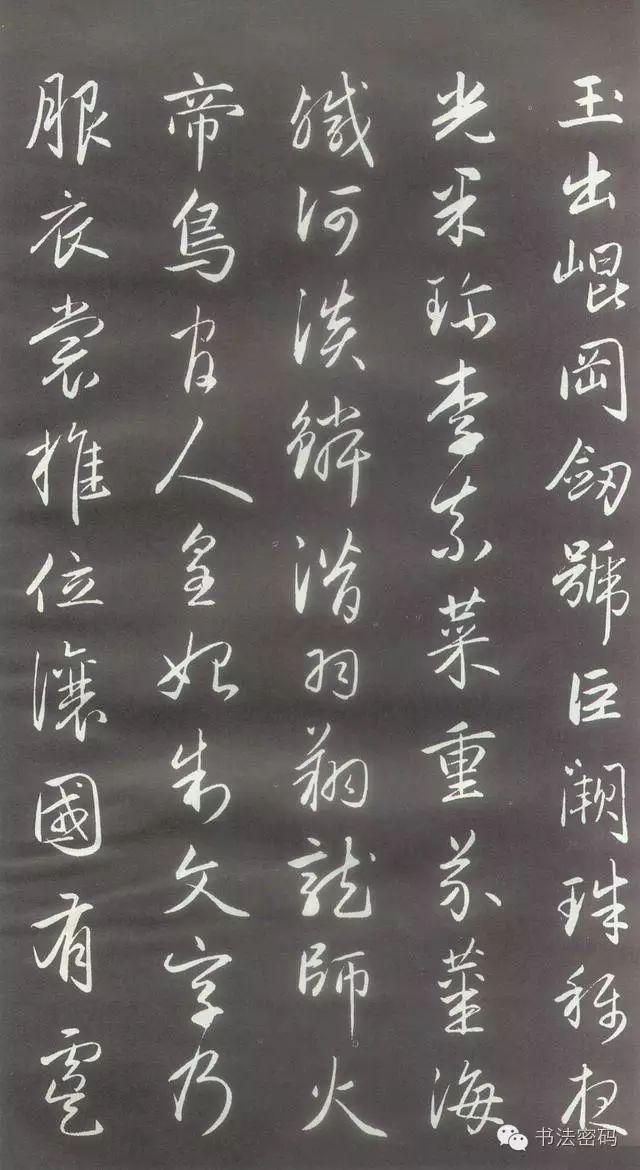 玉出崐岡劔號巨闕珠稱夜
光果珍李柰菜重芥薑海
鹹河淡鱗潛羽翔龍師火
帝鳥官人皇始制文字乃
服衣裳推位讓國有虞
书法密码